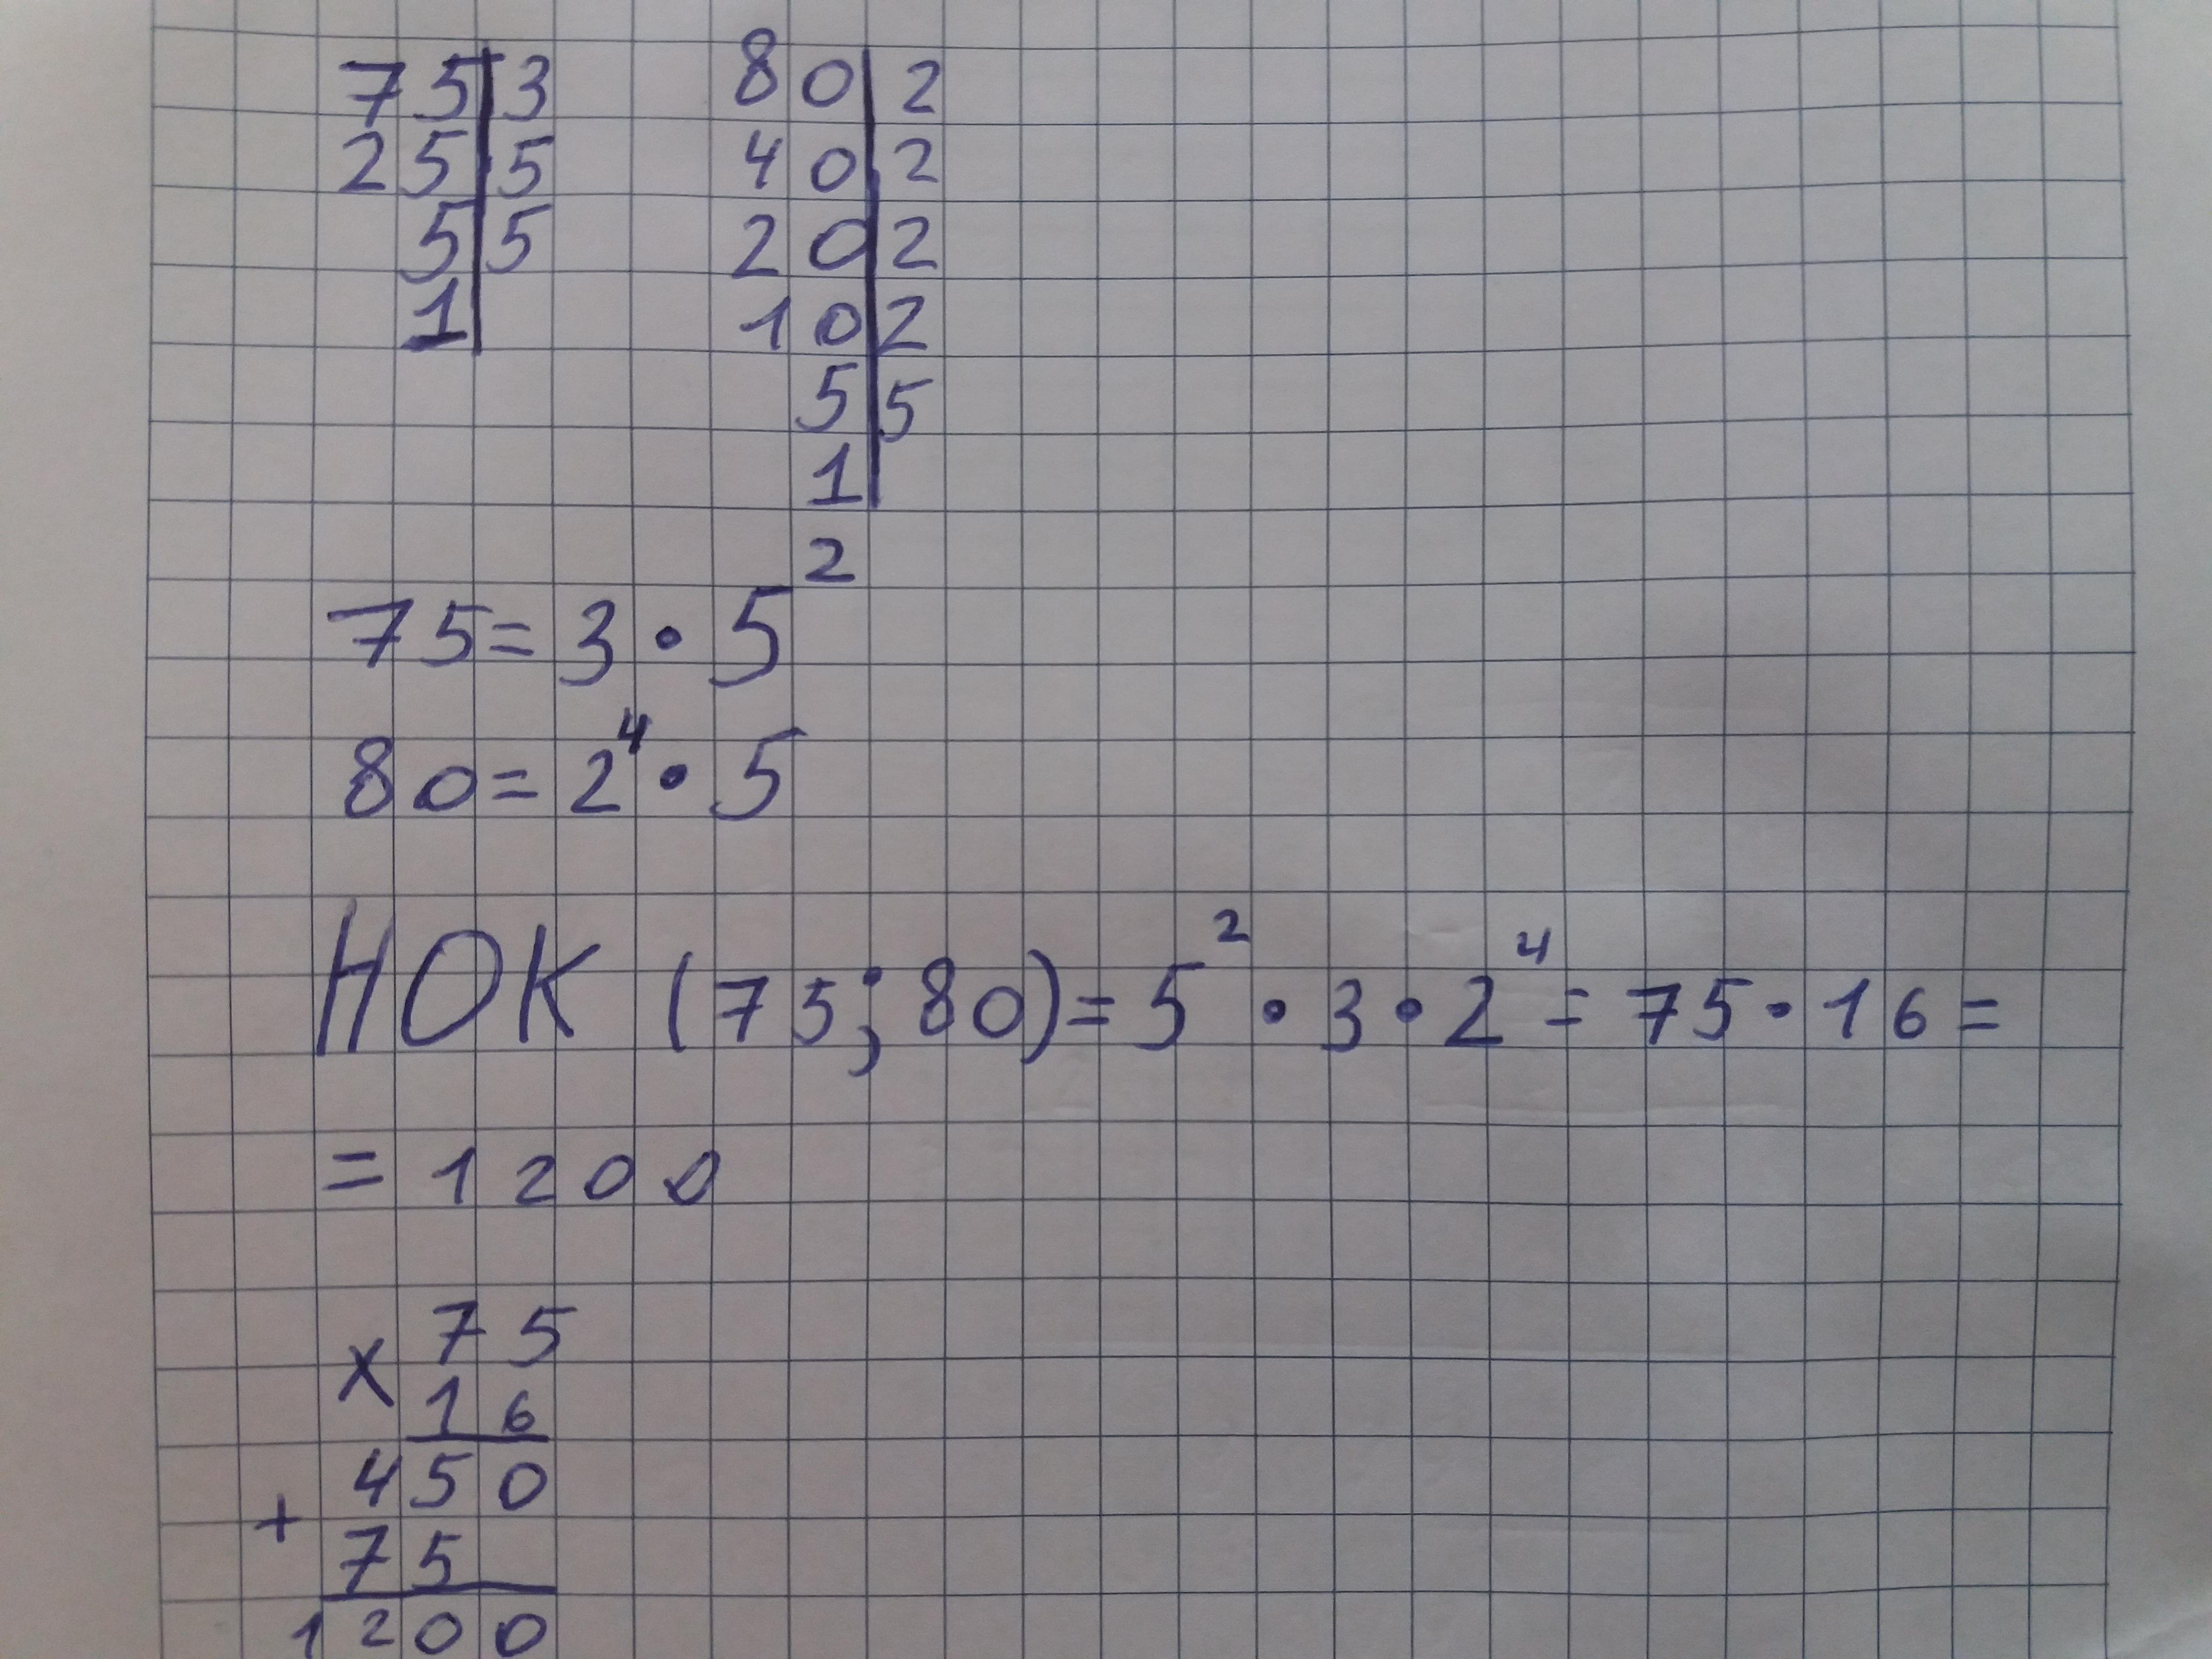 75|3
25|5
5|5
1|
80|2
40|2
20|2
10|2
5|5
1|
75=3•5²
80=2⁴•5
НОК (75;80)=5²•3•2⁴=75•16=
=1200
×75
16
450
+
75
1200